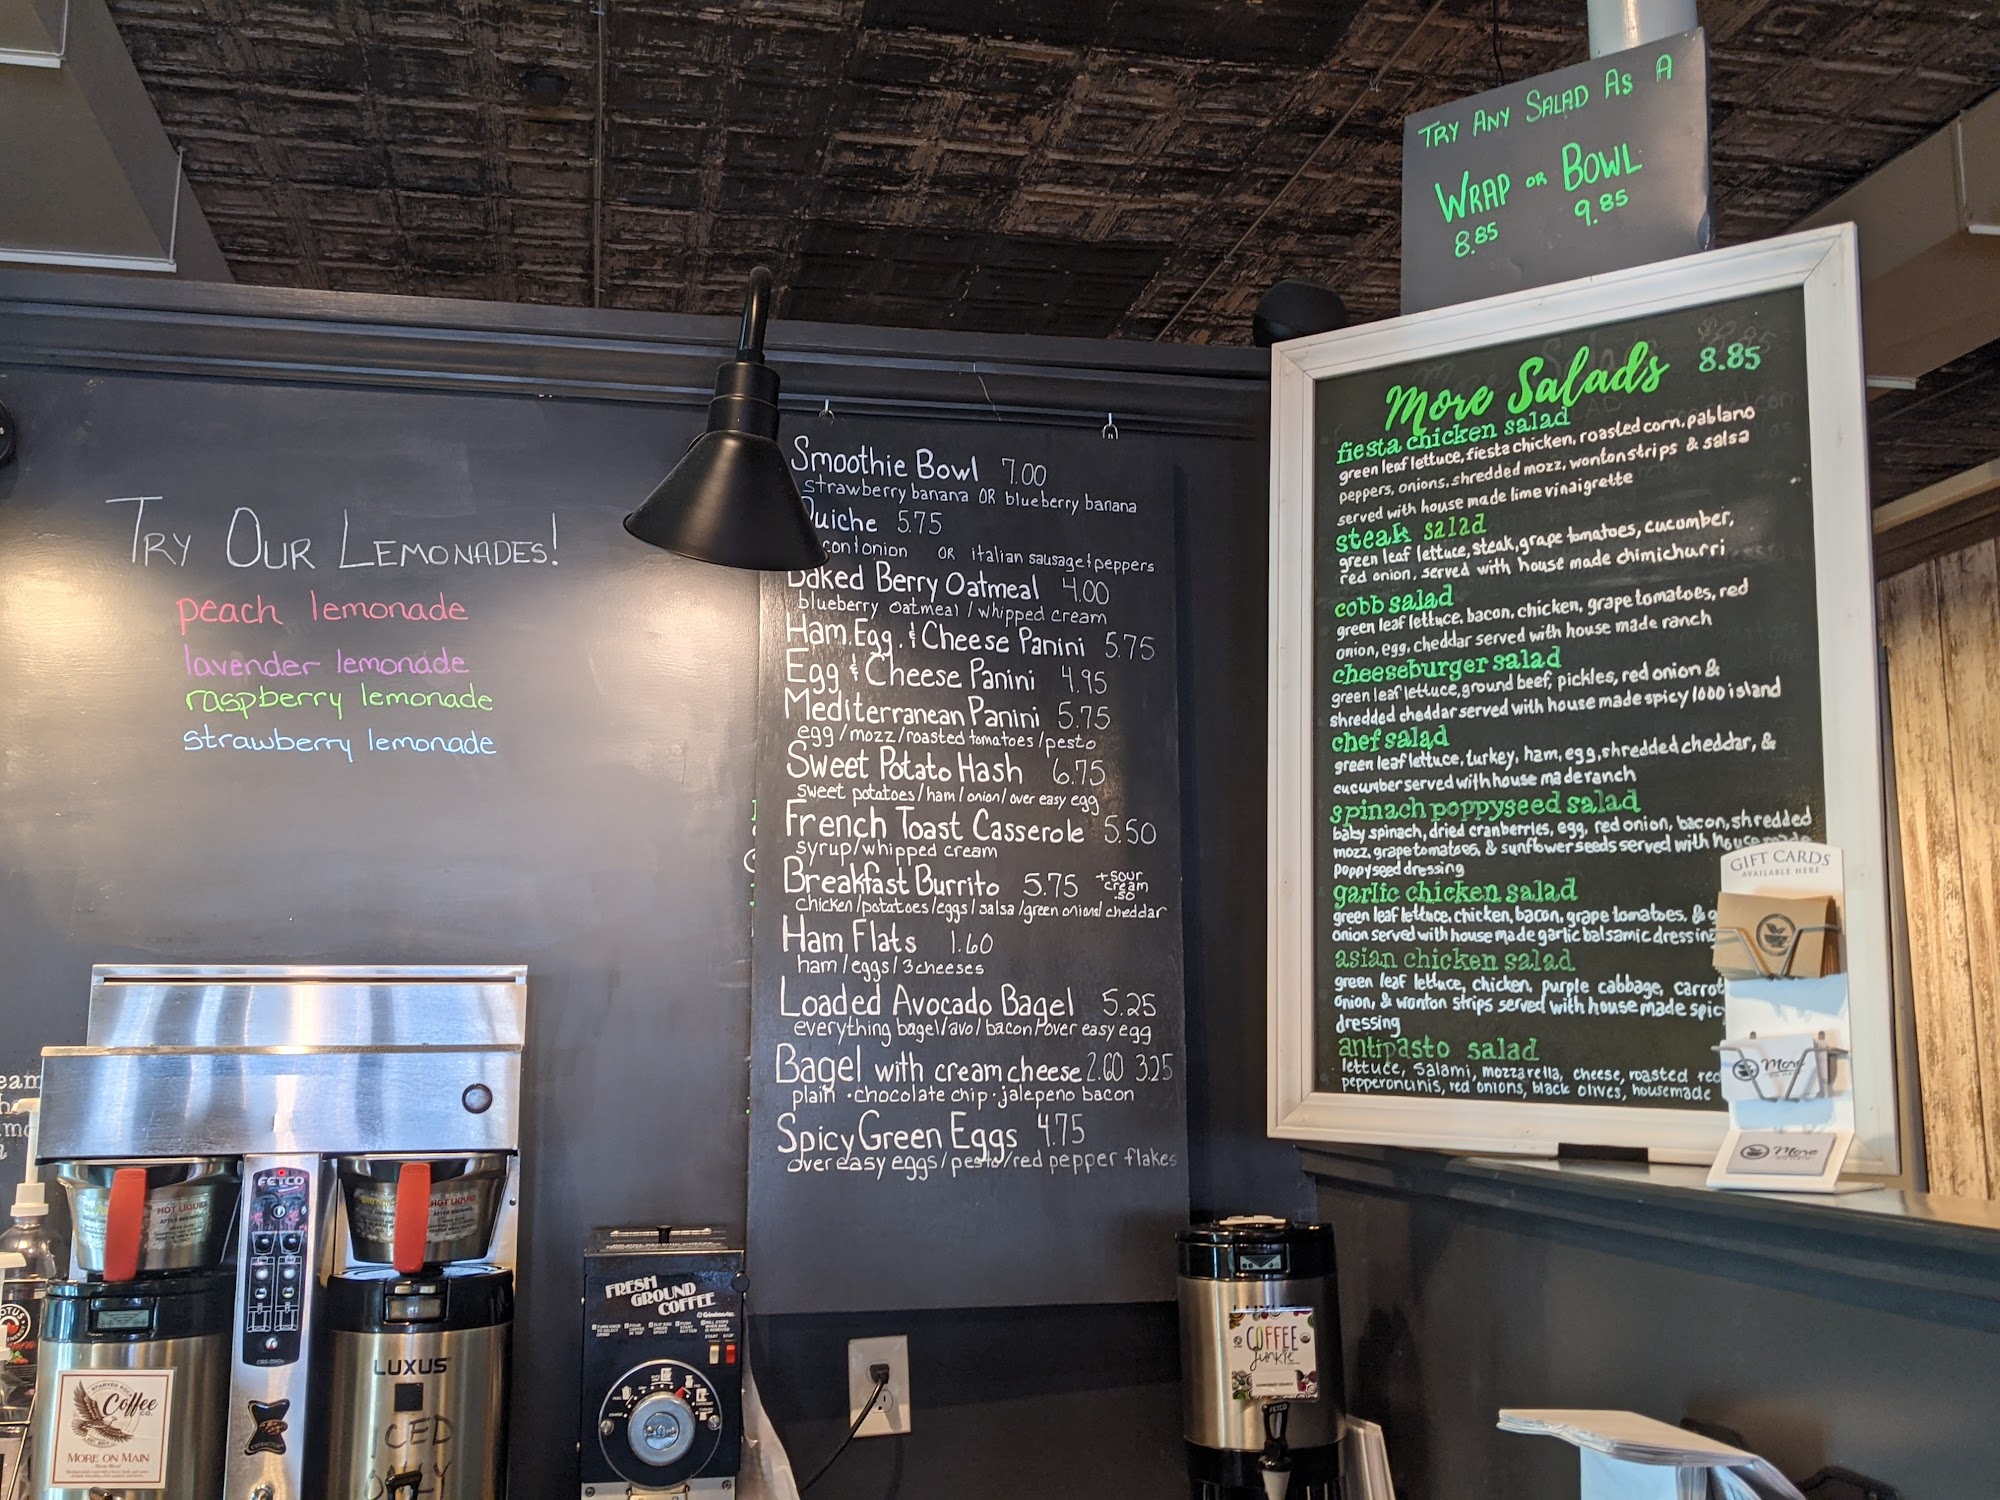 TRY ANY SALAD AS A
WRAP OR BOWL
8.85 9.85
TRY OUR LEMONADES!
peach lemonade
lavender lemonade
raspberry lemonade
strawberry lemonade
Smoothie Bowl 7.00
strawberry banana OR blueberry banana
Quiche 5.75
onion OR italian sausage & peppers
Baked Berry Oatmeal 4.00
blueberry oatmeal / whipped cream
Ham, Egg, & Cheese Panini 5.75
Egg & Cheese Panini 4.95
Mediterranean Panini 5.75
egg / mozz / roasted tomatoes / pesto
Sweet Potato Hash 6.75
sweet potatoes / ham / onion / over easy egg
French Toast Casserole 5.50
syrup / whipped cream
Breakfast Burrito 5.75 + sour cream .50
chicken / potatoes / eggs / salsa / green onions / cheddar
Ham Flats 1.60
ham / eggs / 3 cheeses
Loaded Avocado Bagel 5.25
everything bagel / avo / bacon / over easy egg
Bagel with cream cheese 2.60 3.25
plain · chocolate chip · jalepeno bacon
Spicy Green Eggs 4.75
over easy eggs / pesto / red pepper flakes
More Salads 8.85
fiesta chicken salad
green leaf lettuce, fiesta chicken, roasted corn, pablano
peppers, onions, shredded mozz, wonton strips & salsa
served with house made lime vinaigrette
steak salad
green leaf lettuce, steak, grape tomatoes, cucumber,
red onion, served with house made chimichurri
cobb salad
green leaf lettuce, bacon, chicken, grape tomatoes, red
onion, egg, cheddar served with house made ranch
cheeseburger salad
green leaf lettuce, ground beef, pickles, red onion &
shredded cheddar served with house made spicy 1000 island
chef salad
green leaf lettuce, turkey, ham, egg, shredded cheddar, &
cucumber served with house made ranch
spinach poppyseed salad
baby spinach, dried cranberries, egg, red onion, bacon, shredded
mozz, grape tomatoes, & sunflower seeds served with house made
poppyseed dressing
garlic chicken salad
green leaf lettuce, chicken, bacon, grape tomatoes, & g
onion served with house made garlic balsamic dressing
asian chicken salad
green leaf lettuce, chicken, purple cabbage, carrot
onion, & wonton strips served with house made spic
dressing
antipasto salad
lettuce, salami, mozzarella, cheese, roasted red
pepperoncinis, red onions, black olives, housemade
GIFT CARDS
AVAILABLE HERE
More
More
FETCO
HOT LIQUID
HOT LIQUID
LUXUS
ICED
ONLY
STARVED ROCK
Coffee
CO.
MORE ON MAIN
FRESH
GROUND
COFFEE
COFFEE
Junkie
FETCO